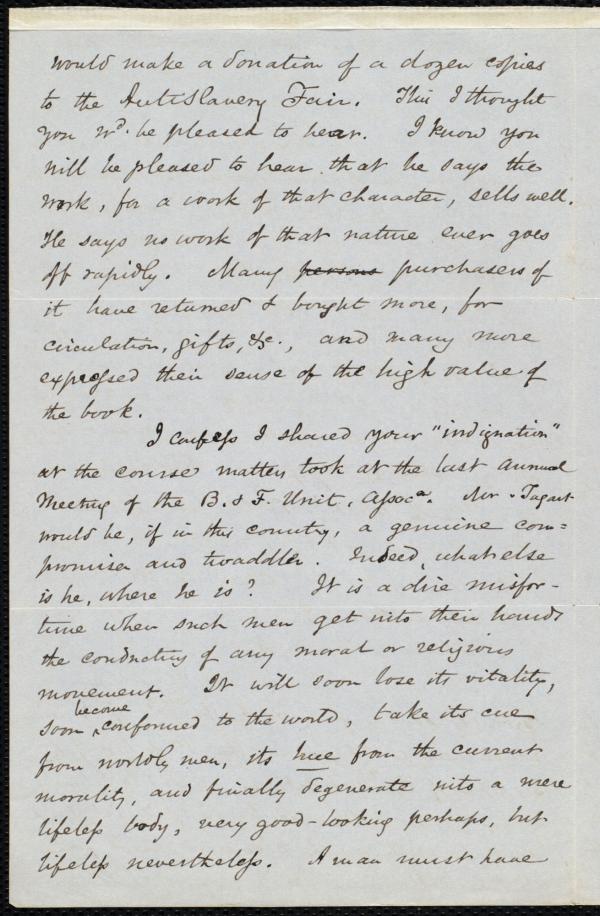 would make a donation of a dozen copies
to the AntiSlavery Fair. This I thought
you wd. be pleased to hear. I know you
will be pleased to hear that he says the
work, for a work of that character, sells well.
He says no work of that nature ever goes
off rapidly. Many persons purchasers of
it have returned & bought more, for
circulation, gifts, &c., and many more
expressed their sense of the high value of
the book.
I confess I shared your "indignation"
at the course matters took at the last Annual
Meeting of the B. & F. Unit. Assoca. Mr. Tagart
would be, if in this country, a genuine com=
promiser and twaddler. Indeed, what else
is he, where he is? It is a dire misfor-
tune when such men get into their hands
the conducting of any moral or religious
movement. It will soon lose its vitality,
soon become conformed to the world, take its cue
from worldly men, its hue from the current
morality, and finally degenerate into a mere
lifeless body, very good-looking perhaps, but
lifeless nevertheless. A man must have